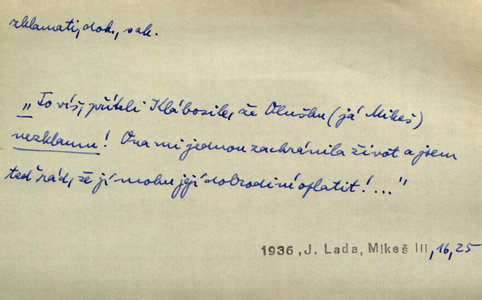 zklamati, dok., sak.
„To víš, příteli Klábosile, že Olušku (já Mikeš)
nezklamu! Ona mi jednou zachránila život a jsem
teď rád, že jí mohu její dobrodiní oplatit!..."
1936, J. Lada, Mikeš III, 16, 25